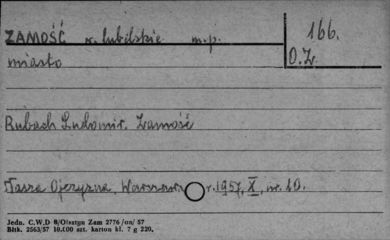 ZAMOŚĆ w. lubelskie m.p.
166.
miasto
O.Z.
Rubach Ludomir. Zamość
Nasza Ojczyzna, Warszawa r. 1957, X, nr. 10.
Jedn. C.W.D 8/Olsztyn Zam 2776/on/57
Bltk. 2563/57 10.000 szt. karton kl. 7 g 220.